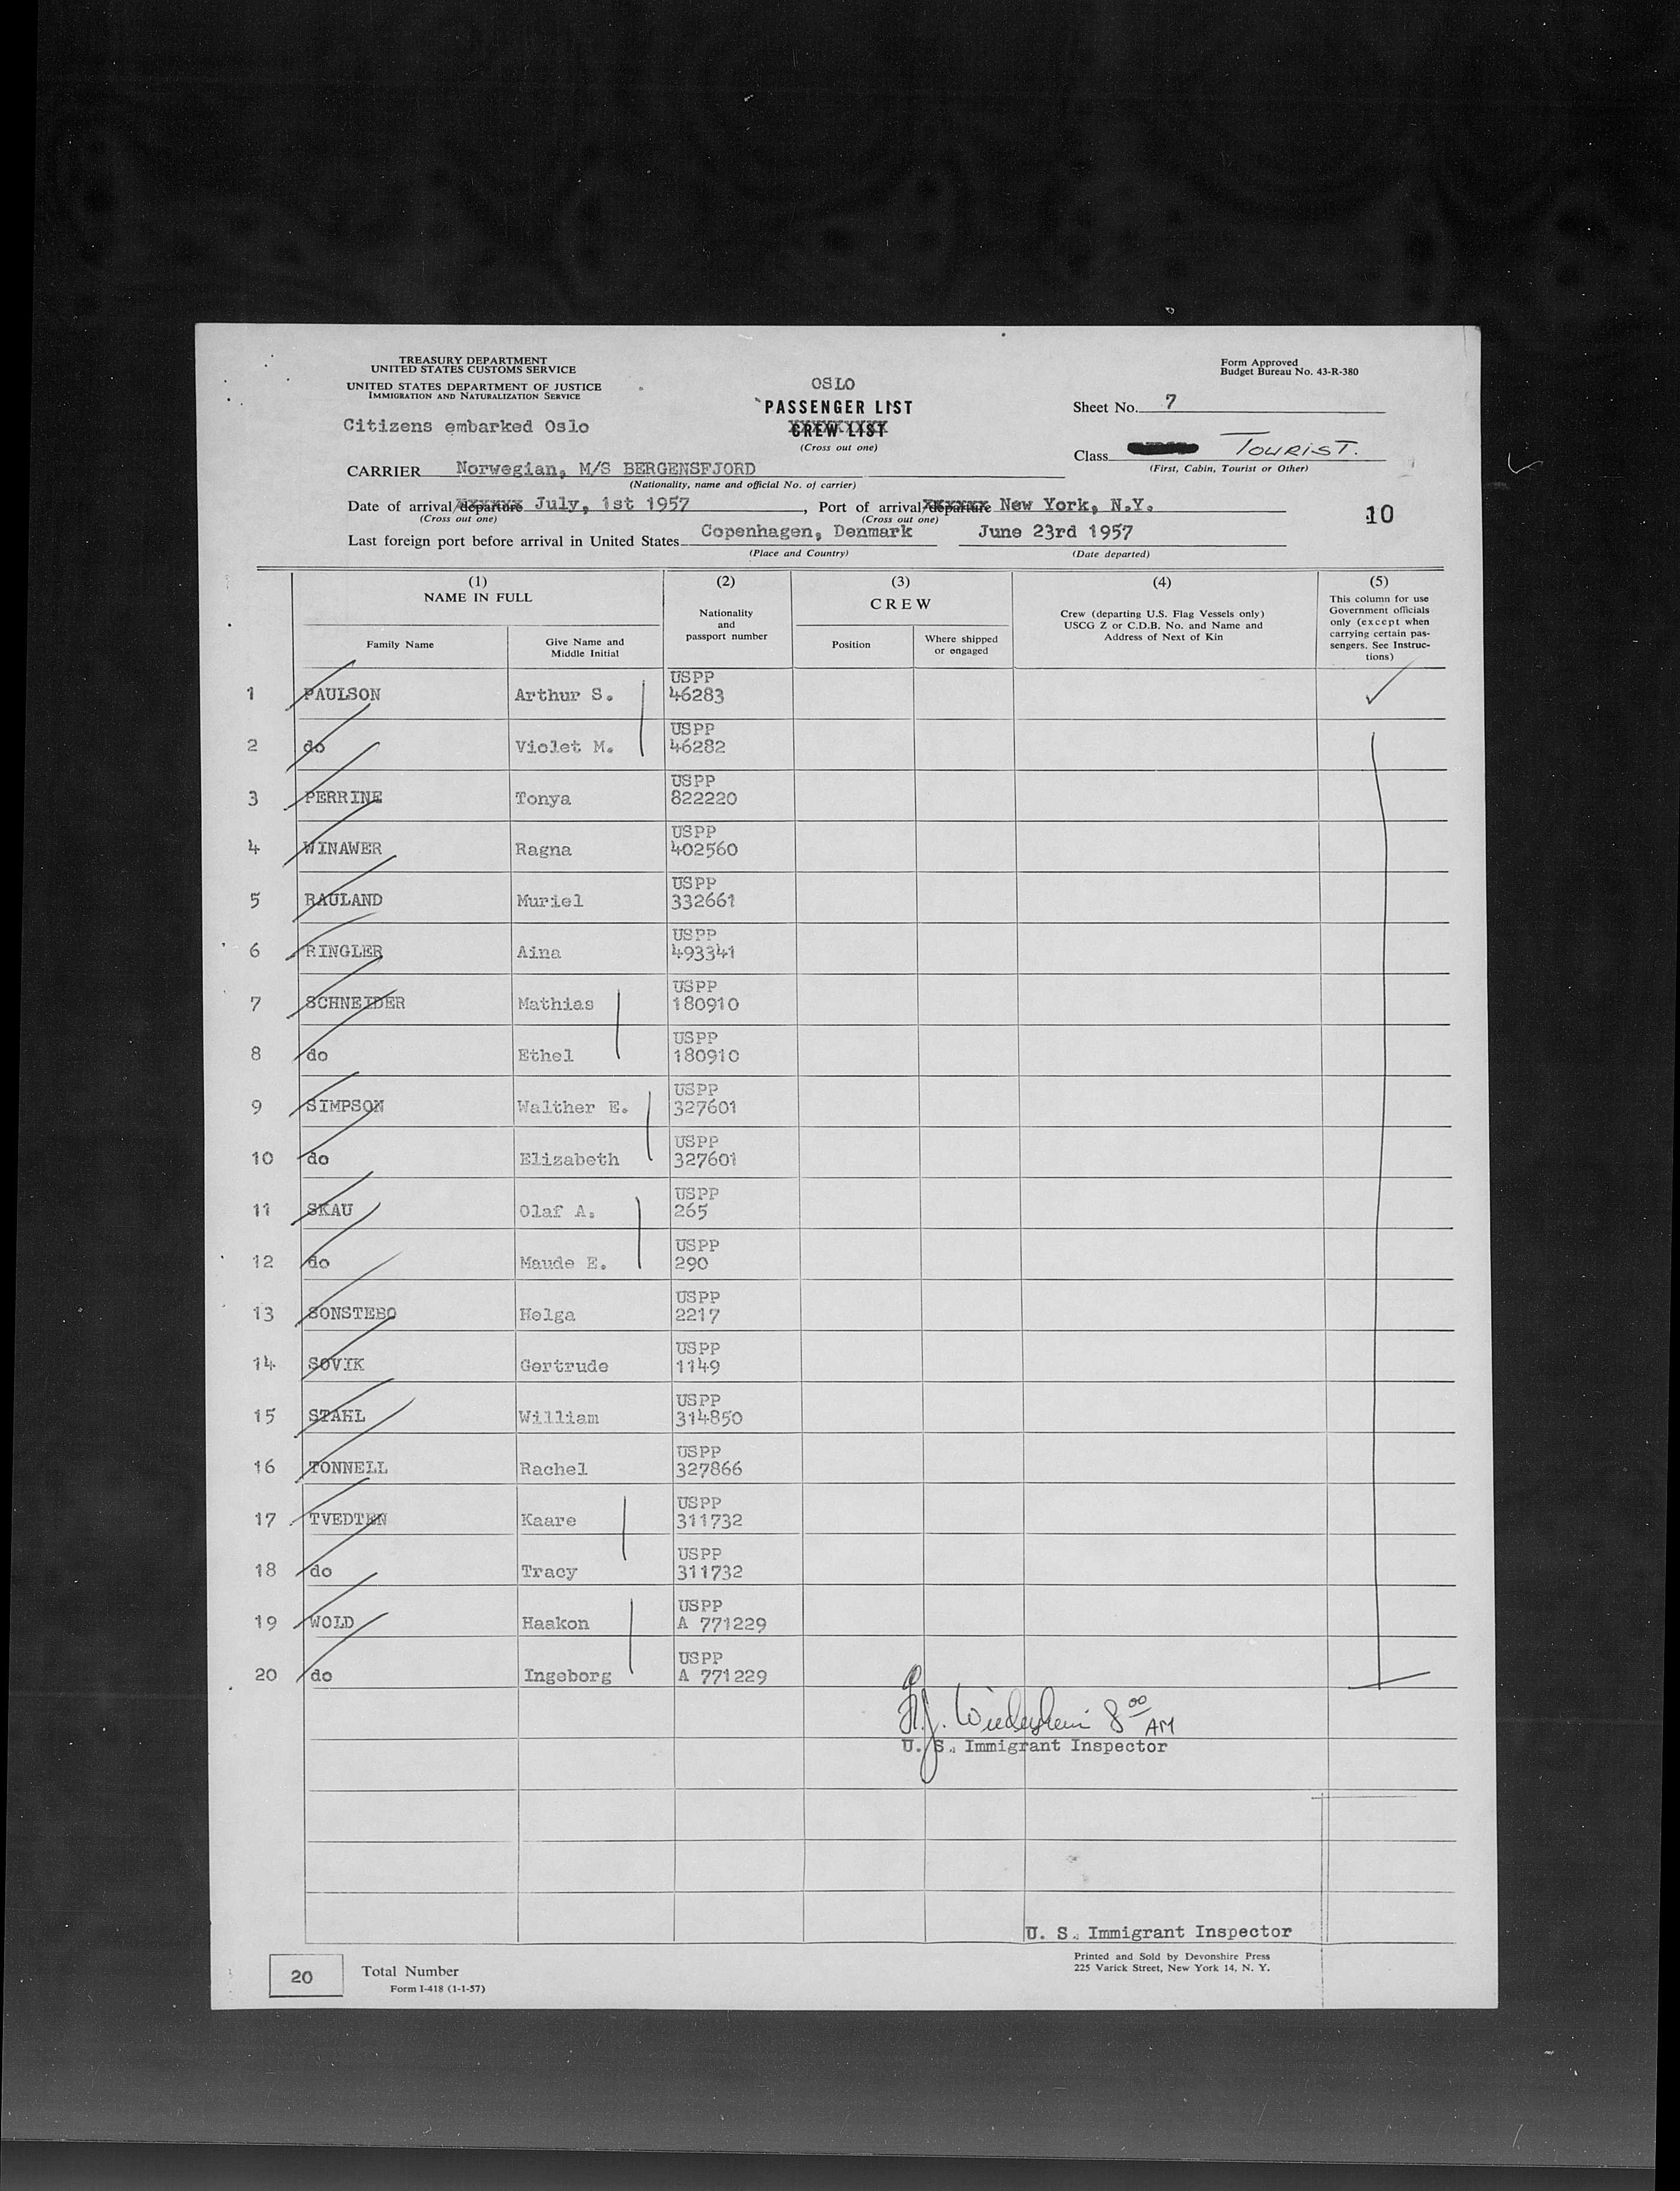 TREASURY DEPARTMENT
UNITED STATES CUSTOMS SERVICE
UNITED STATES DEPARTMENT OF JUSTICE
IMMIGRATION AND NATURALIZATION SERVICE
Citizens embarked Oslo
OSLO
PASSENGER LIST
CREW LIST
(Cross out one)
Form Approved
Budget Bureau No. 43-R-380
Sheet No. 7
Class TOURIST.
(First, Cabin, Tourist or Other)
CARRIER Norwegian, M/S BERGENSFJORD
(Nationality, name and official No. of carrier)
Date of arrival/departure July, 1st 1957, Port of arrival/departure New York, N.Y.
(Cross out one) (Cross out one)
10
Last foreign port before arrival in United States Copenhagen, Denmark June 23rd 1957
(Place and Country) (Date departed)
(1) (2) (3) (4) (5)
NAME IN FULL
Family Name
Give Name and
Middle Initial
Nationality
and
passport number
CREW
Position
Where shipped
or engaged
Crew (departing U.S. Flag Vessels only)
USCG Z or C.D.B. No. and Name and
Address of Next of Kin
This column for use
Government officials
only (except when
carrying certain pas-
sengers. See Instruc-
tions)
1 PAULSON Arthur S. USPP 46283
2 do Violet M. USPP 46282
3 PERRINE Tonya USPP 822220
4 WINAWER Ragna USPP 402560
5 RAULAND Muriel USPP 332661
6 RINGLER Aina USPP 493341
7 SCHNEIDER Mathias USPP 180910
8 do Ethel USPP 180910
9 SIMPSON Walther E. USPP 327601
10 do Elizabeth USPP 327601
11 SKAU Olaf A. USPP 265
12 do Maude E. USPP 290
13 SONSTEBO Helga USPP 2217
14 SOVIK Gertrude USPP 1149
15 STAHL William USPP 314850
16 TONNELL Rachel USPP 327866
17 TVEDTEN Kaare USPP 311732
18 do Tracy USPP 311732
19 WOLD Haakon USPP A 771229
20 do Ingeborg USPP A 771229
8 00 AM
U. S. Immigrant Inspector
U. S. Immigrant Inspector
Printed and Sold by Devonshire Press
225 Varick Street, New York 14, N. Y.
20 Total Number
Form I-418 (1-1-57)